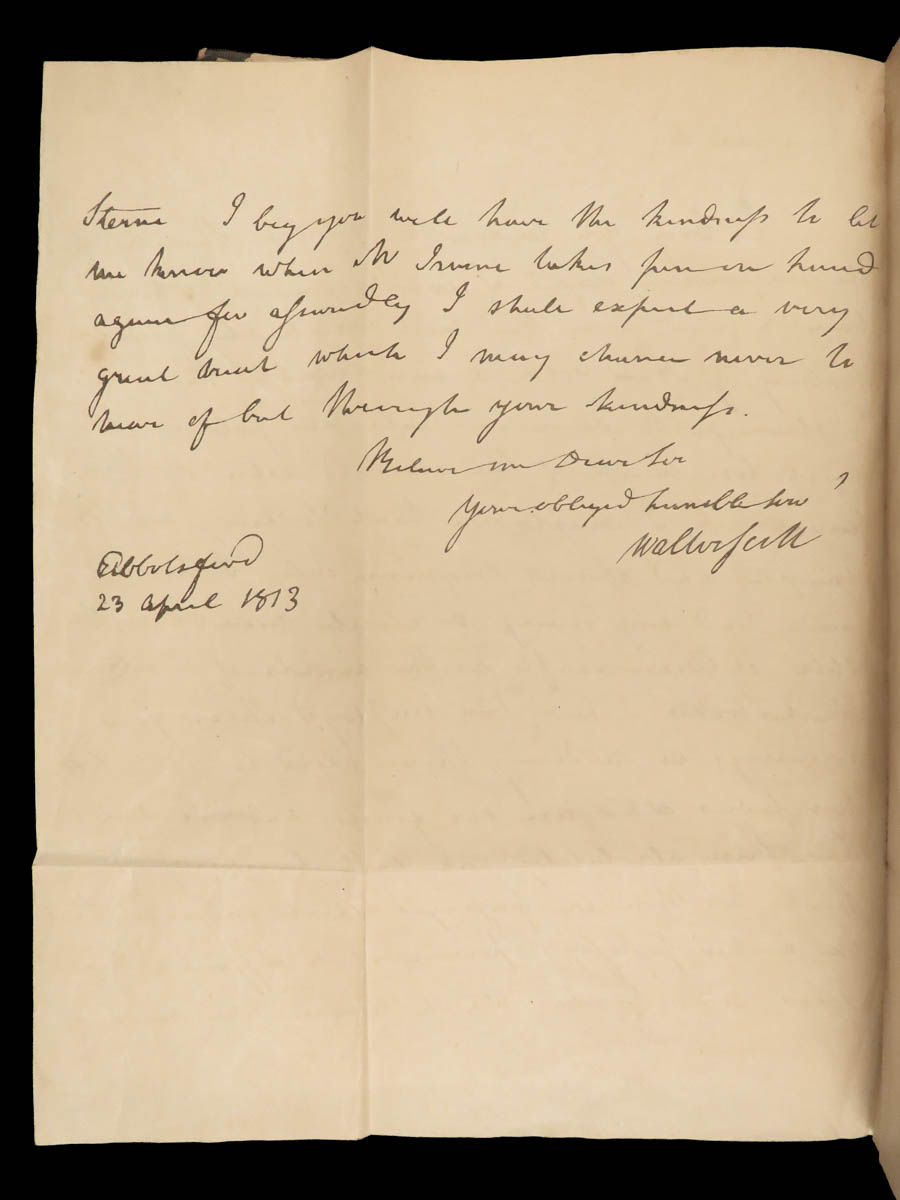 Sterne I beg you will have the kindness to let
me know when Mr Irvine takes pen in hand
again for assuredly I shall expect a very
great treat which I may chance never to
hear of but through your kindness.
Believe me Dear Sir
Your obliged humble serv
Walter Scott
Abbotsford
23 april 1813